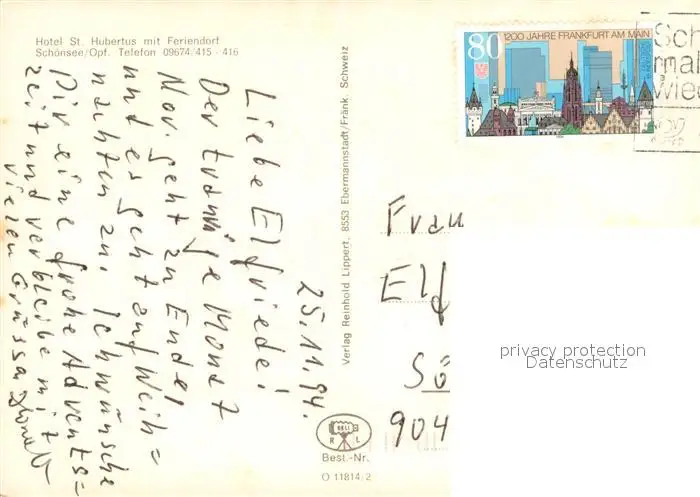 Hotel St. Hubertus mit Feriendorf
Schönsee/Opf. Telefon 09674/415 - 416
25.11.94.
Liebe Elfriede!
Der traurige Monat
Nov. geht zu Ende!
und es geht auf Weih=
nachten zu. Ich wünsche
Dir eine frohe Advents=
zeit und verbleibe mit
vielen Grüssen
Verlag Reinhold Lippert, 8553 Ebermannstadt/Fränk. Schweiz
RELI
R L
Best.-Nr.
O 11814/2
80
1200 JAHRE FRANKFURT AM MAIN
Sch
mal
wied
Frau
Elf
Sö
904
privacy protection
Datenschutz